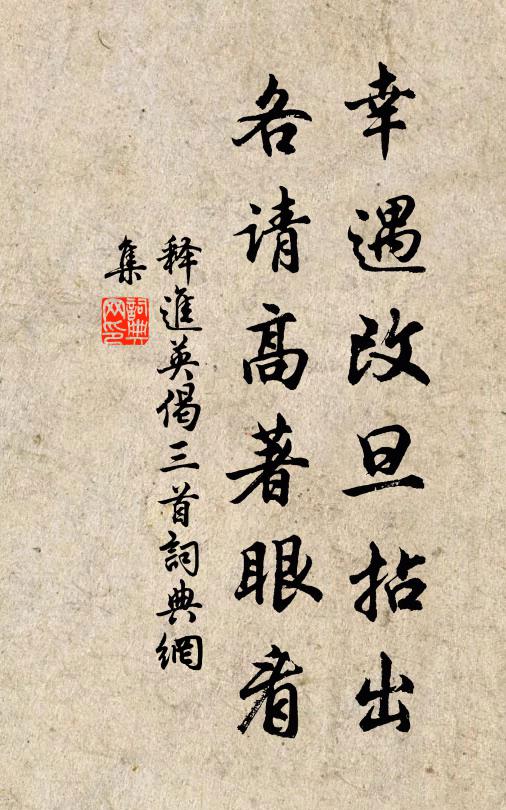 幸遇改旦拈出
各请高著眼看
釋進英偈三首詞典網
集
詞典网印